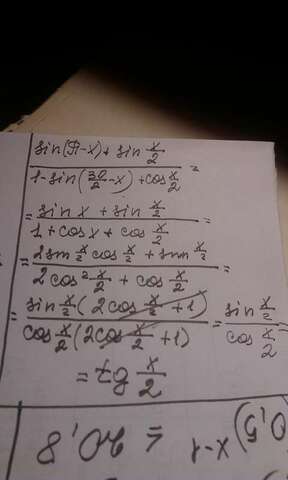 sin(π-x) + sin x/2 / 1 - sin(3π/2 - x) + cos x/2 =
= sin x + sin x/2 / 1 + cos x + cos x/2 =
= 2 sin x/2 cos x/2 + sin x/2 / 2 cos² x/2 + cos x/2 =
= sin x/2 (2cos x/2 + 1) / cos x/2 (2cos x/2 + 1) = sin x/2 / cos x/2 =
= tg x/2
0,5) x-1 = 20,8